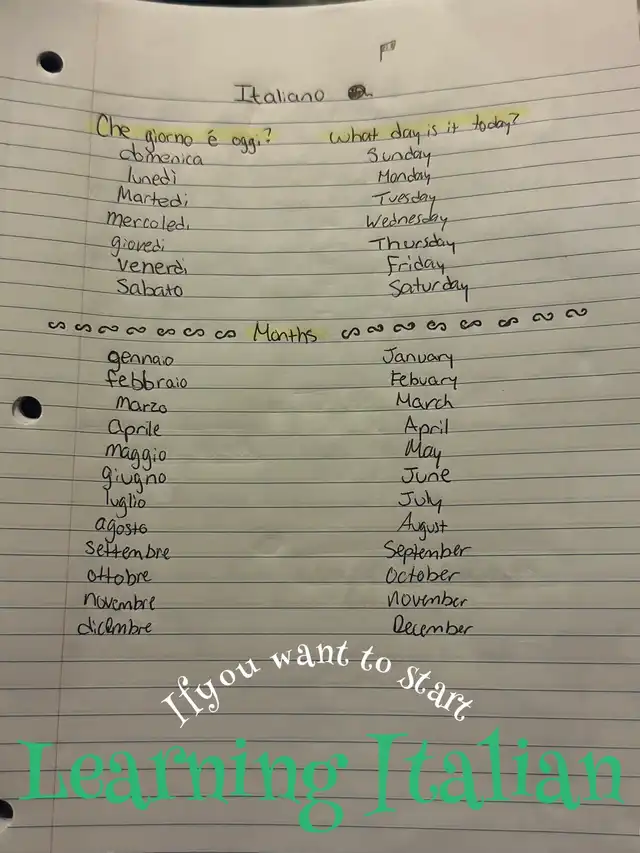 Italiano
Che giorno é oggi? What day is it today?
domenica Sunday
lunedì Monday
Martedì Tuesday
mercoledì Wednesday
giovedì Thursday
venerdì Friday
Sabato Saturday
Months
gennaio January
febbraio Febuary
marzo March
Aprile April
maggio May
giugno June
luglio July
agosto August
settembre September
ottobre October
novembre November
dicembre December
Ifyou want to start
Learning Italian